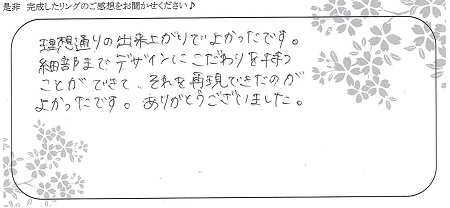 是非 完成したリングのご感想をお聞かせください♪
理想通りの出来上がりでよかったです。
細部までデザインにこだわりを持つ
ことができて、それを再現できたのが
よかったです。ありがとうございました。